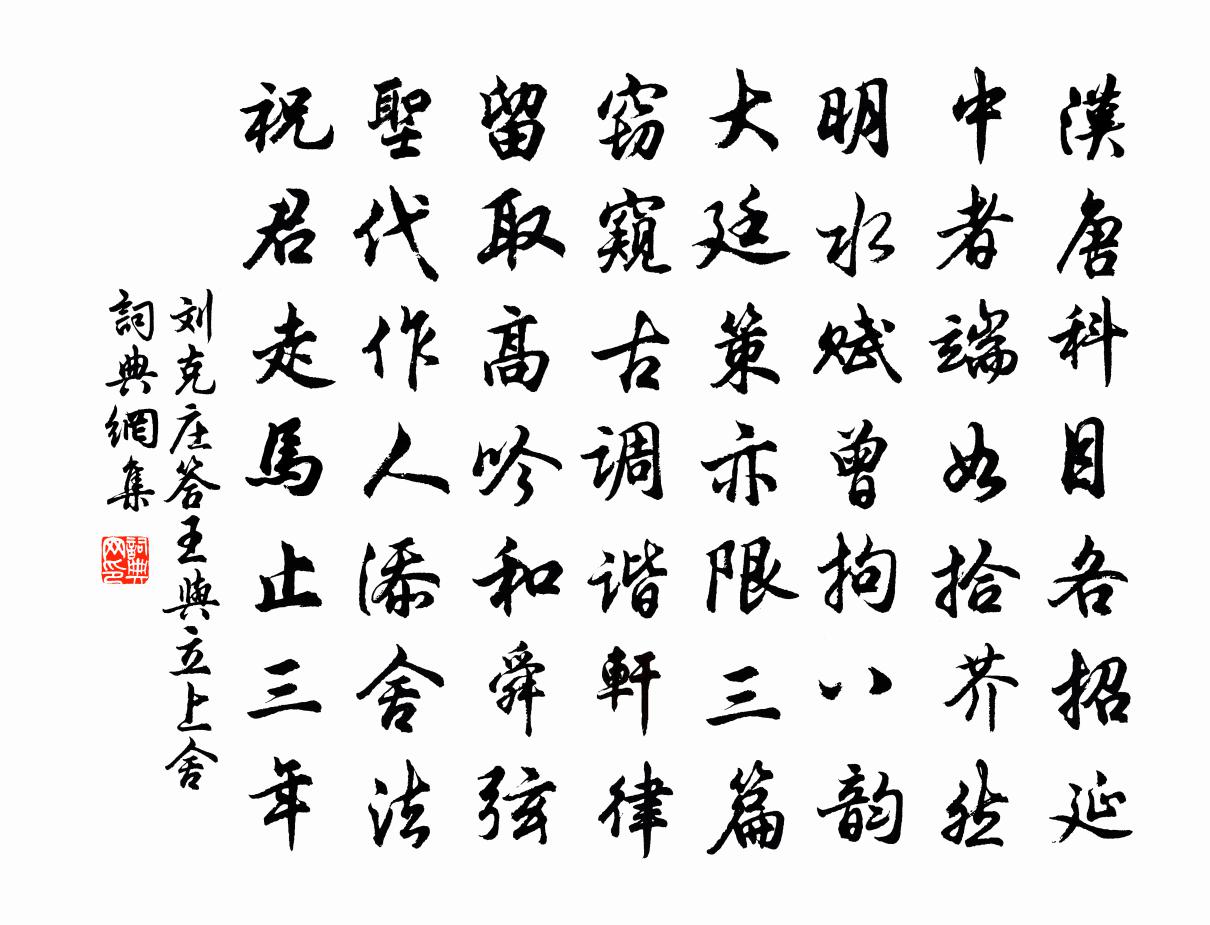 漢唐科目各招延
中者端如拾芥然
明水赋曾拘八韵
大廷策亦限三篇
窃窺古调谐軒律
留取高吟和舜弦
聖代作人添舍法
祝君走馬止三年
刘克庄答王與立上舍
詞典網集
詞典网印